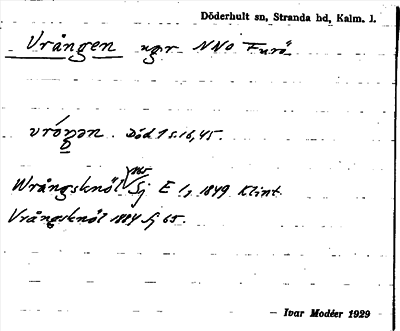 Döderhult sn, Stranda hd, Kalm. l.
Vrången ugr NNO Furö
vrόŋən. Död 1 s. 16, 45.
Wrångsknöl Sj E 1, 1849 Klint
Vrångsknöl 1884 Sj 65.
– Ivar Modéer 1929